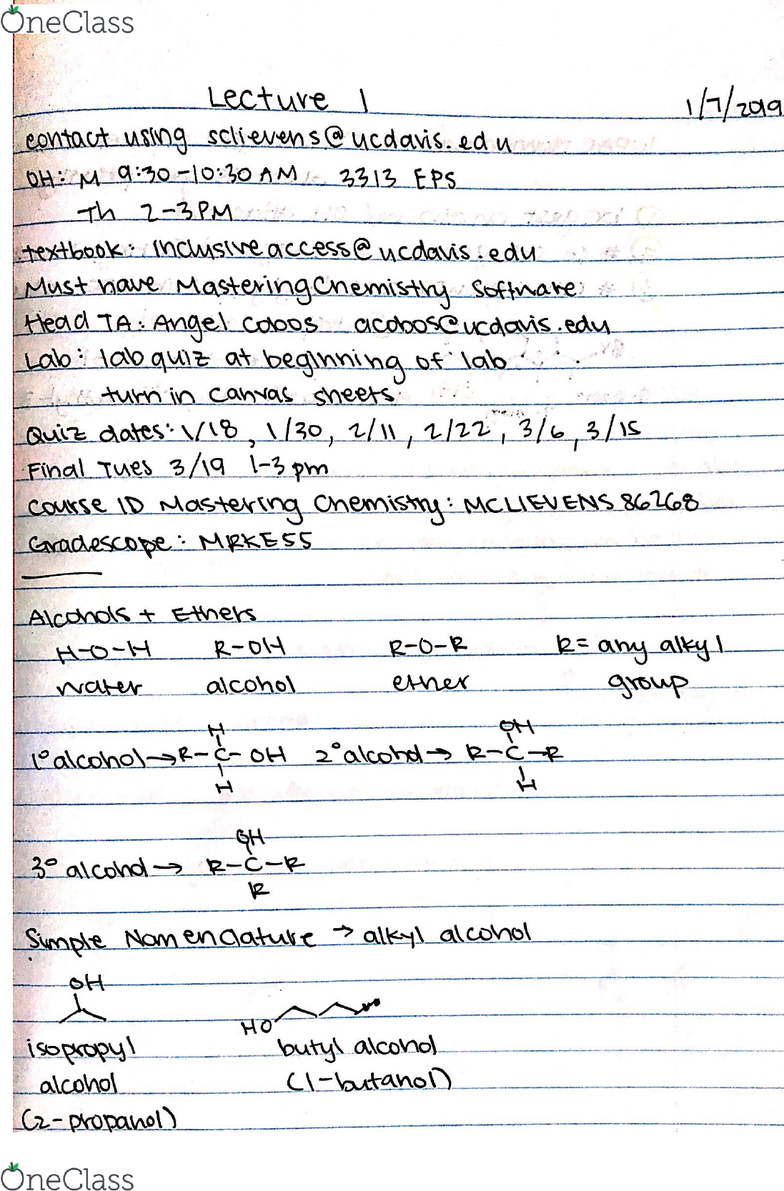 OneClass
Lecture 1 1/7/2019
contact using sclievens@ucdavis.edu
OH: M 9:30-10:30 AM 3313 EPS
Th 2-3PM
textbook: inclusiveaccess@ucdavis.edu
Must have MasteringChemistry Software
Head TA: Angel Cobos acobos@ucdavis.edu
Lab: lab quiz at beginning of lab
turn in canvas sheets
Quiz dates: 1/18, 1/30, 2/11, 2/22, 3/6, 3/15
Final Tues 3/19 1-3 pm
Course ID Mastering Chemistry: MCLIEVENS 86268
Gradescope: MRKE55
Alcohols + Ethers
H-O-H R-OH R-O-R R= any alkyl
water alcohol ether group
H OH
1° alcohol → R-C-OH 2° alcohol → R-C-R
H H
OH
3° alcohol → R-C-R
R
Simple Nomenclature → alkyl alcohol
OH
HO
isopropyl butyl alcohol
alcohol (1-butanol)
(2-propanol)
OneClass